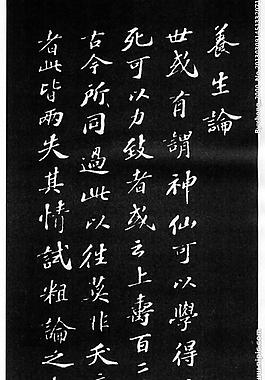 養生論
世或有謂神仙可以學得
死可以力致者或云上壽百二
古今所同過此以往莫非夭
者此皆兩失其情試粗論之